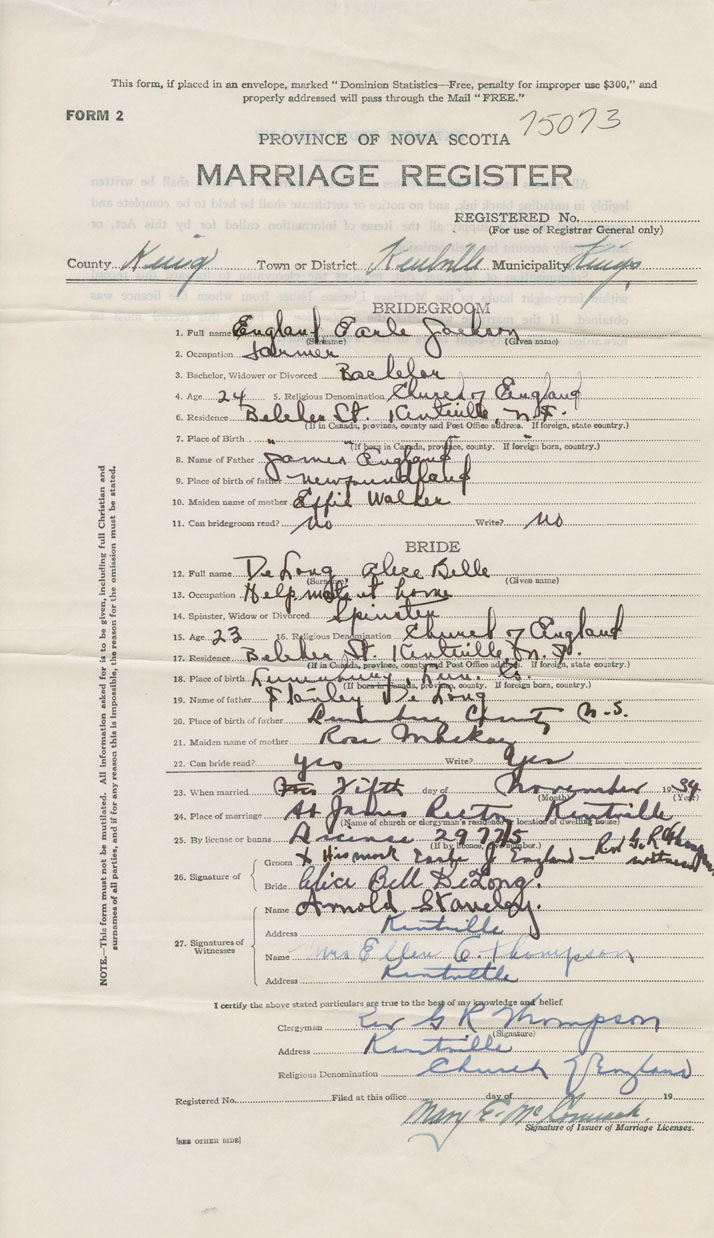 This form, if placed in an envelope, marked "Dominion Statistics—Free, penalty for improper use $300," and
properly addressed will pass through the Mail "FREE."
FORM 2
75073
PROVINCE OF NOVA SCOTIA
MARRIAGE REGISTER
REGISTERED No.
(For use of Registrar General only)
County Kings Town or District Kentville Municipality Kings
BRIDEGROOM
1. Full name England Earle Jackson
(Surname) (Given name)
2. Occupation Farmer
3. Bachelor, Widower or Divorced Bachelor
4. Age 24 5. Religious Denomination Church of England
6. Residence Belcher St. Kentville, N.S.
(If in Canada, province, county and Post Office address. If foreign, state country.)
7. Place of Birth " " "
(If born in Canada, province, county. If foreign born, country.)
8. Name of Father James England
9. Place of birth of father Newfoundland
10. Maiden name of mother Effie Walker
11. Can bridegroom read? No Write? No
BRIDE
12. Full name DeLong Alice Belle
(Surname) (Given name)
13. Occupation Help mate at home
14. Spinster, Widow or Divorced Spinster
15. Age 23 16. Religious Denomination Church of England
17. Residence Belcher St. Kentville, N.S.
(If in Canada, province, county and Post Office address. If foreign, state country.)
18. Place of birth Lunenburg, Lun. Co.
(If born in Canada, province, county. If foreign born, country.)
19. Name of father Stanley DeLong
20. Place of birth of father Lunenburg County N.S.
21. Maiden name of mother Rose
22. Can bride read? Yes Write? Yes
23. When married Fifth day of November 1934
(Month) (Year)
24. Place of marriage St James Kentville
(Name of church or clergyman's residence, location of dwelling house)
25. By license or banns License 297715
(If by licence, number.)
26. Signature of
Groom X His mark Earle J England – Rev G. R. Thompson
witness
Bride Alice Bell DeLong.
27. Signatures of Witnesses
Name Arnold
Address Kentville
Name Mrs Ellen C. Thompson
Address Kentville
I certify the above stated particulars are true to the best of my knowledge and belief.
Clergyman Rev G R Thompson
(Signature)
Address Kentville
Religious Denomination Church of England
Registered No. Filed at this office day of 19
Mary E. McCormack.
Signature of Issuer of Marriage Licenses.
[SEE OTHER SIDE]
NOTE.—This form must not be mutilated. All information asked for is to be given, including full Christian and
surnames of all parties, and if for any reason this is impossible, the reason for the omission must be stated.